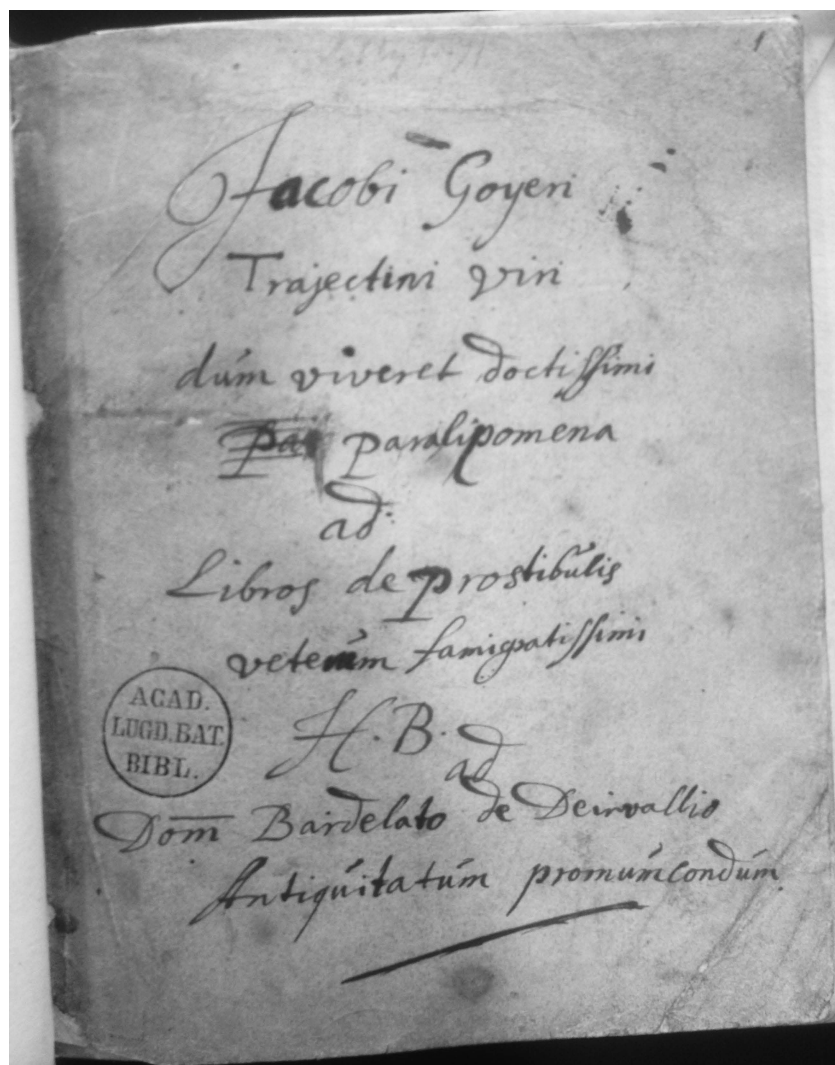 1
Jacobi Goyeri
Trajectini viri
dum viveret doctissimi
paralipomena
ad
Libros de prostibulis
veterum famigratissimi
H. B. ad
Dom̄ Bardelato de Deirvallio
Antiquitatum promumcondum
ACAD.
LUGD. BAT.
BIBL.